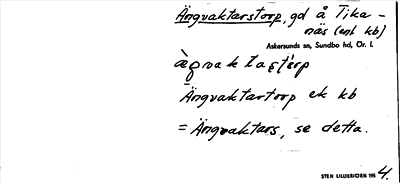 Ängvaktarstorp, gd å Tika-
näs (enl kb)
Askersunds sn, Sundbo hd, Ör. l.
Ängvaktartorp ek kb
= Ängvaktars, se detta.
STEN LILLIEBJÖRN 195 4.